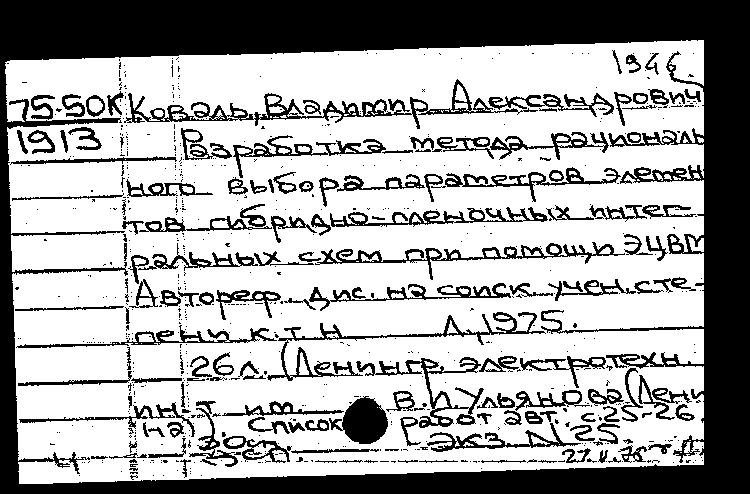 1946.
75-50К Коваль, Владимир Александрович
1913 Разработка метода рациональ
ного выбора параметров элемен
тов гибридно-пленочных интег-
ральных схем при помощи ЭЦВМ
Автореф. дис. на соиск учен. сте-
пени к.т.н Л., 1975.
26л. (Ленингр. электротехн.
ин-т им. В.И Ульянова (Лени
на). Список работ авт.: с.25-26.
ЭКЗ N 25